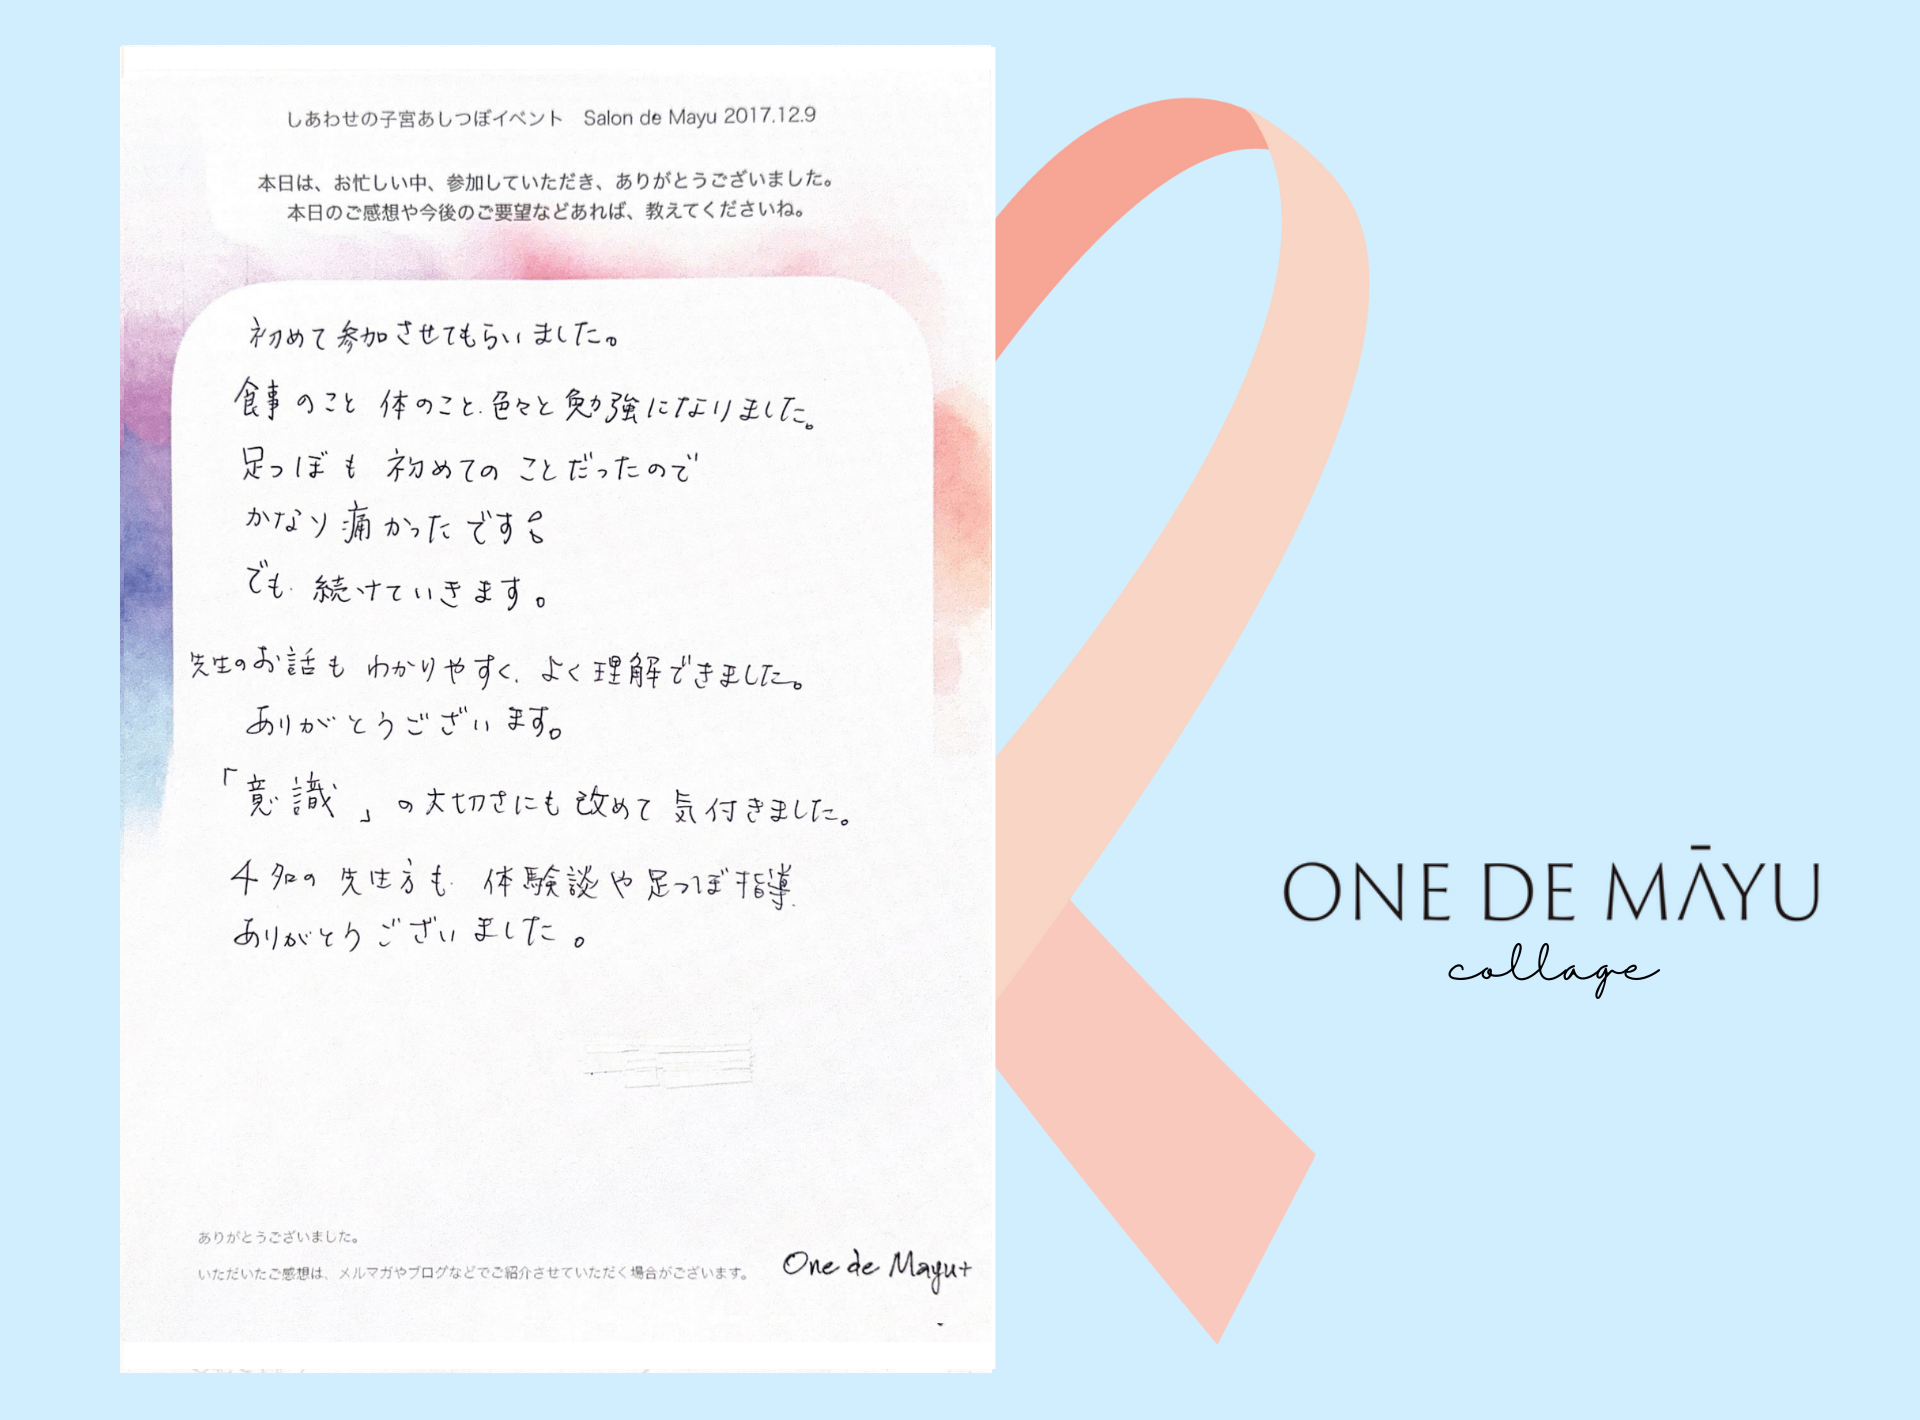 しあわせの子宮あしつぼイベント　Salon de Mayu 2017.12.9
本日は、お忙しい中、参加していただき、ありがとうございました。
本日のご感想や今後のご要望などあれば、教えてくださいね。
初めて参加させてもらいました。
食事のこと 体のこと、色々と勉強になりました。
足つぼも 初めてのことだったので
かなり痛かったです。
でも、続けていきます。
先生のお話も わかりやすく、よく理解できました。
ありがとうございます。
「意識」の大切さにも改めて気付きました。
4名の先生方も、体験談や足つぼ指導、
ありがとうございました。
ありがとうございました。
いただいたご感想は、メルマガやブログなどでご紹介させていただく場合がございます。
One de Mayu+
ONE DE MĀYU
collage